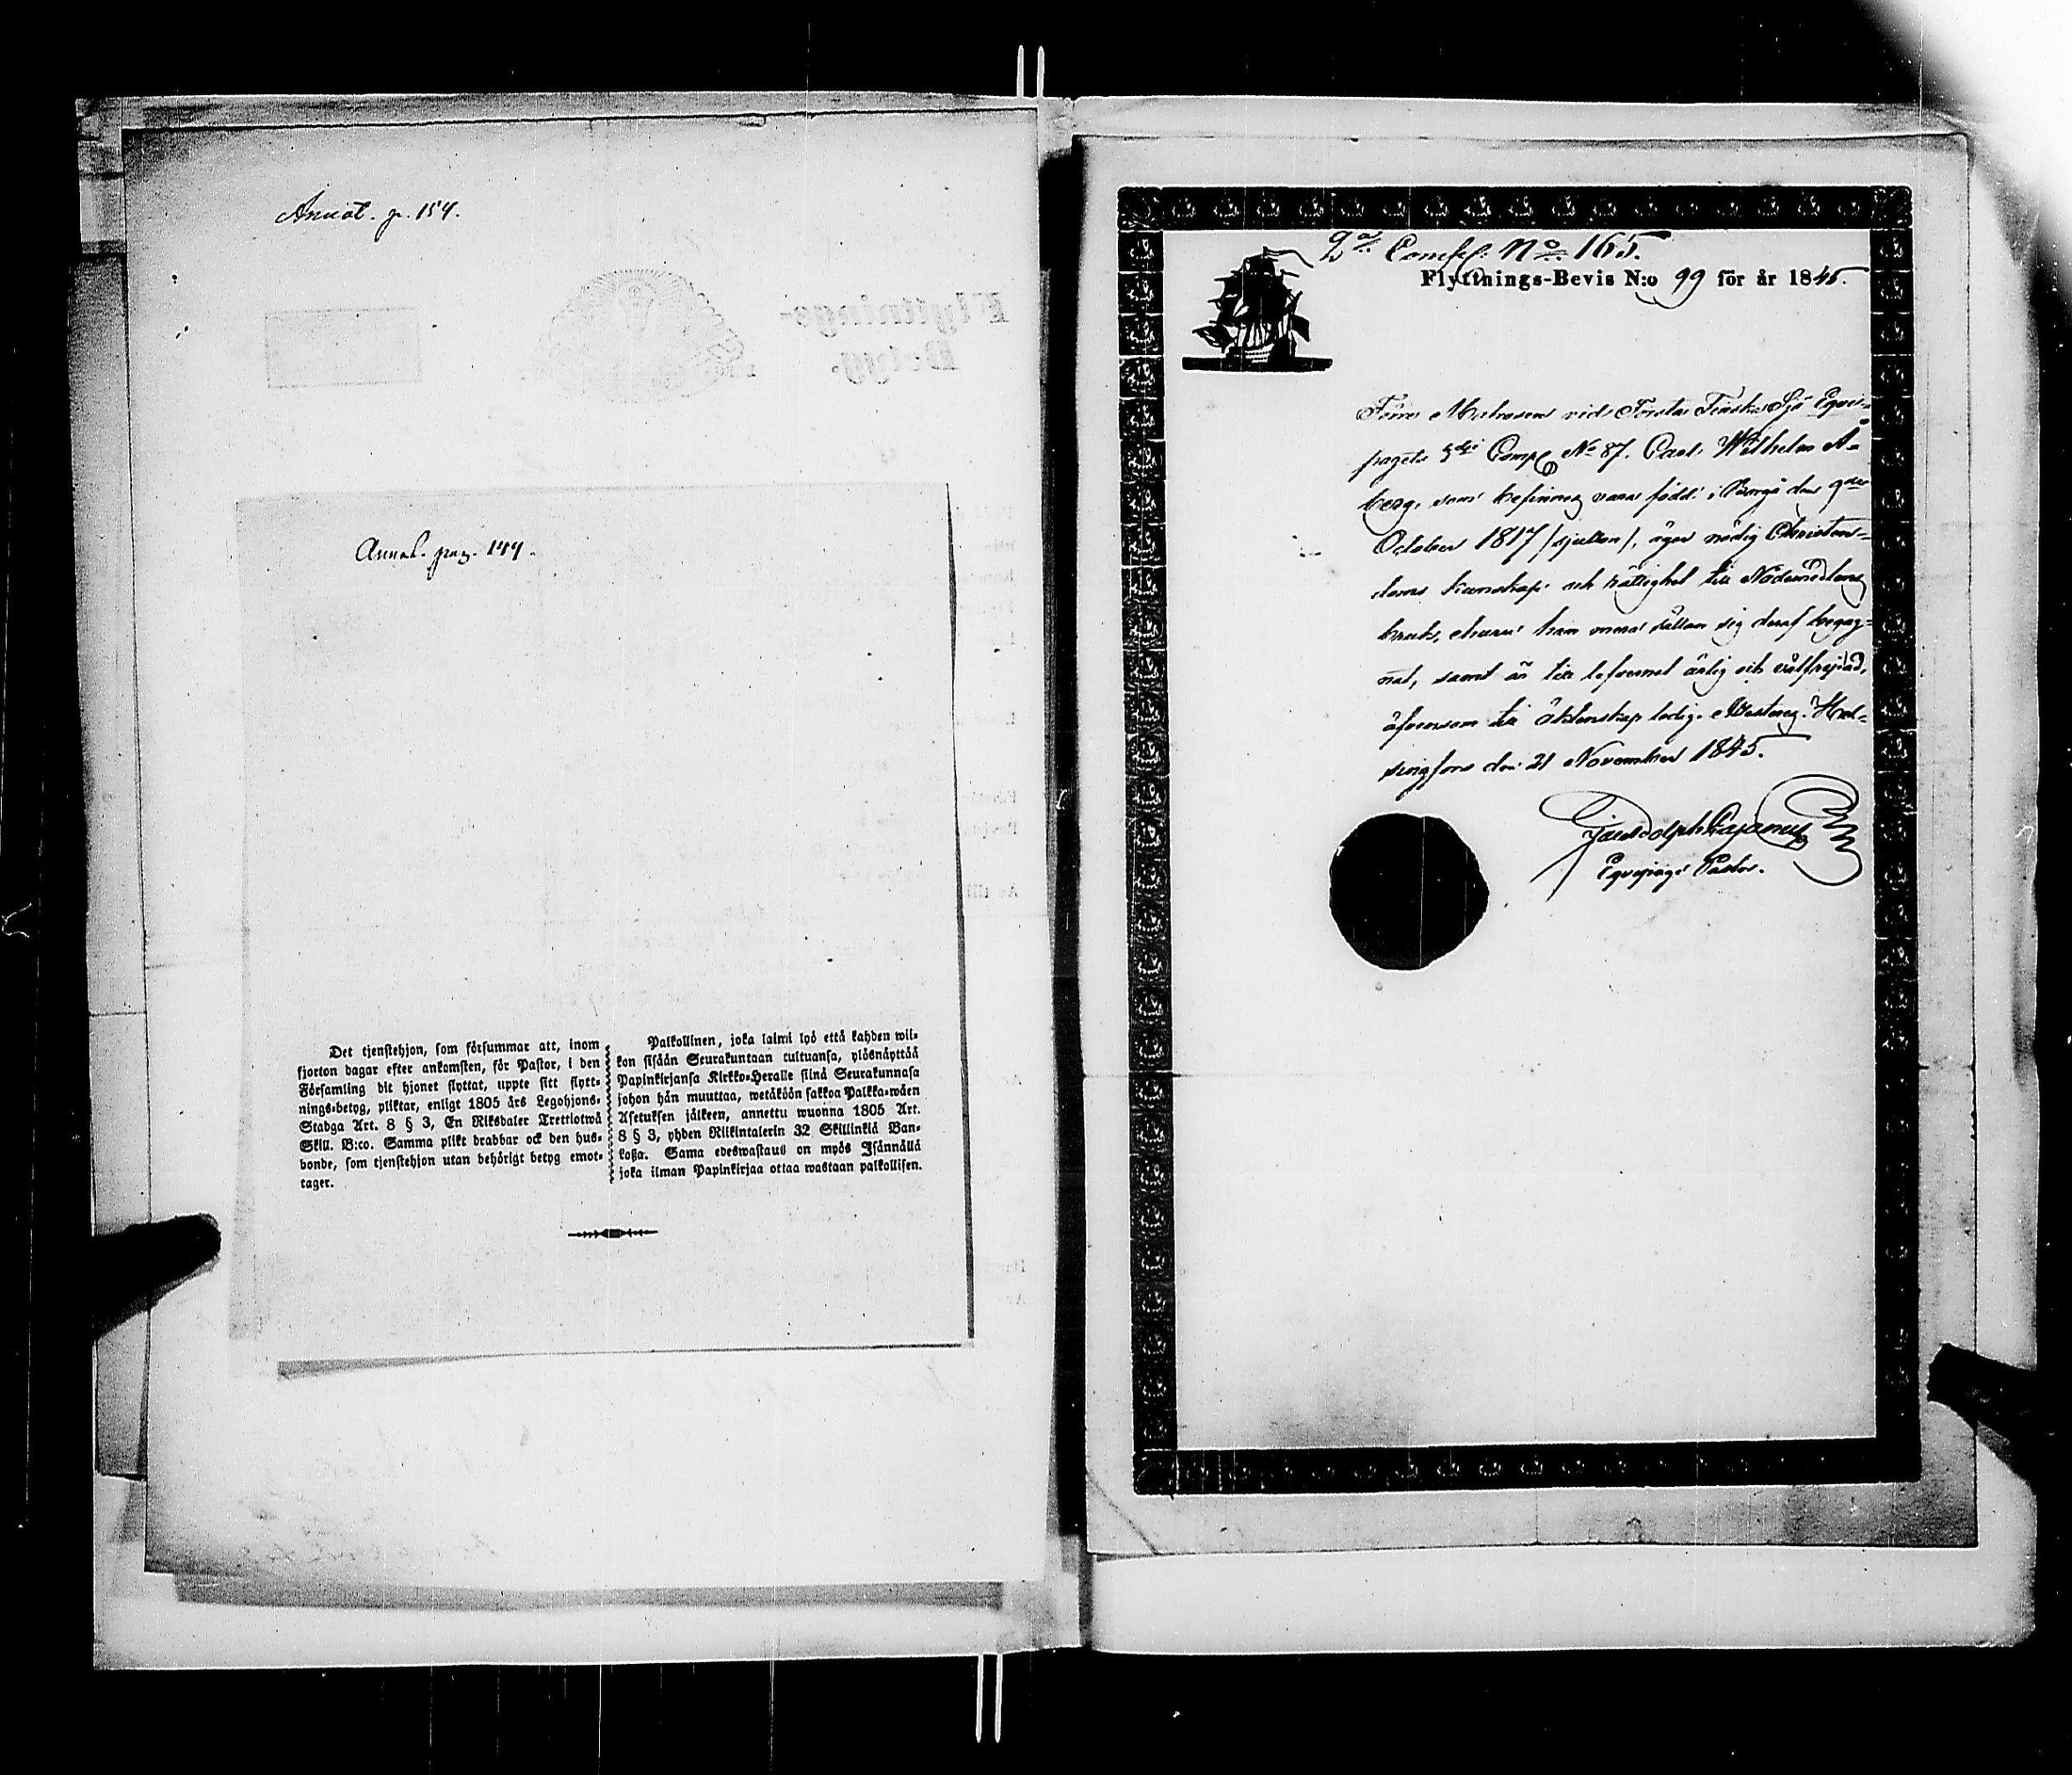 Annot. p. 154.
Annot. pag. 154.
Det tjenstehjon, som försummar att, inom
fjorton dagar efter ankomsten, för Pastor, i den
Församling dit hjonet flyttat, uppte sitt flytt-
nings-betyg, pliktar, enligt 1805 års Legohjons-
Stadga Art. 8 § 3, En Riksdaler Trettiotwå
Skill. B:co. Samma plikt drabbar ock den hus-
bonde, som tjenstehjon utan behörigt betyg emot-
tager.
Palkollinen, joka laimi lyö että kahden wii-
kon sisään Seurakuntaan tultuansa, ylösnäyttää
Papinkirjansa Kirkko-Heralle siinä Seurakunnasa
johon hän muuttaa, wetäköön sakkoa Palkka-wäen
Asetuksen jälkeen, annettu wuonna 1805 Art.
8 § 3, yhden Riikintalerin 32 Skillinkiä Ban-
koßa. Sama edeswastaus on myös Isännällä
joka ilman Papinkirjaa ottaa wastaan palkollisen.
2:a Comp. No. 165.
Flyttnings-Bevis N:o 99 för år 1845.
Förre Matrosen vid Första Finska Sjö Equi-
pagets 5:te Comp. No 87. Carl Wilhelm Å-
berg, som befinnes vara född i Borgå den 9de
October 1817 /sjutton/, äger nödig Christen-
doms kunskap och rättighet till Nådemedlens
bruk, ehuru han mera sällan sig deraf begag-
nat, samt är till lefvernet ärlig och välfrejdad,
äfvensom till äktenskap ledig. Attesteras. Hel-
singfors den 21 November 1845.
Equipage Pastor.